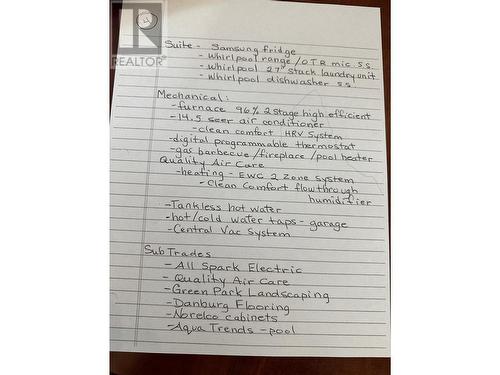 4
REALTOR
Suite - Samsung fridge
- Whirlpool range/OTR mic s.s.
- Whirlpool 27" stack laundry unit
- Whirlpool dishwasher s.s.
Mechanical:
- furnace 96% 2 stage high efficient
- 14.5 seer air conditioner
- clean comfort HRV System
- digital programmable thermostat
- gas barbecue/fireplace/pool heater
Quality Air Care
- heating - EWC 2 Zone System
- Clean Comfort flowthrough
humidifier
- Tankless hot water
- hot/cold water taps - garage
- Central Vac System
Sub Trades
- All Spark Electric
- Quality Air Care
- Green Park Landscaping
- Danburg Flooring
- Norelco cabinets
- Aqua Trends - pool